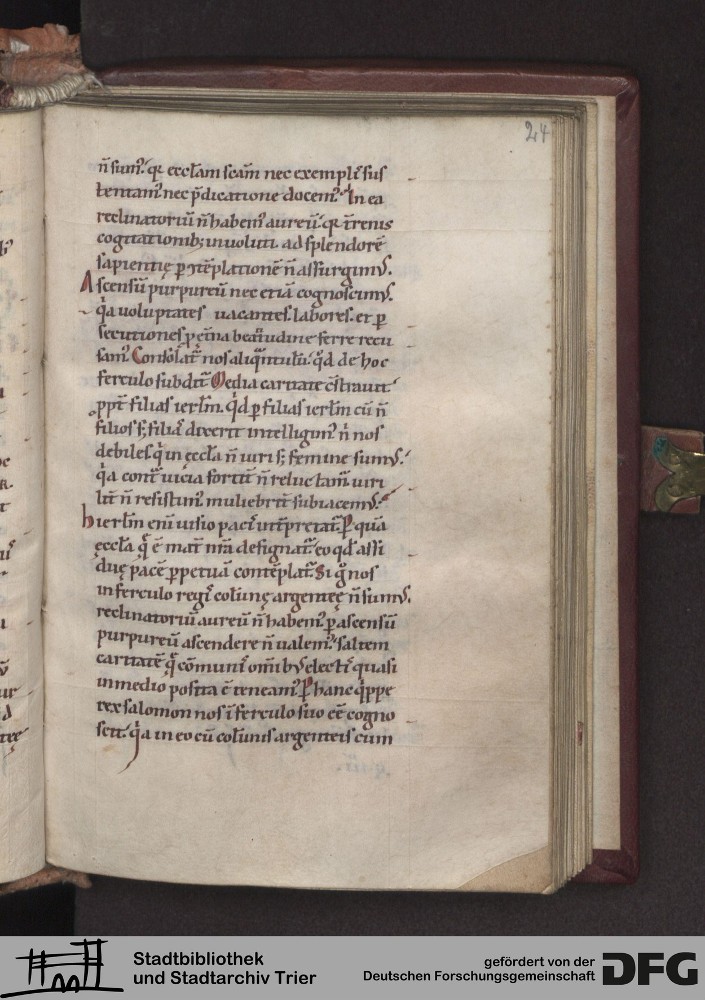 24
n̄ sum᷒. qꝛ ecclam scam nec exemplis sus
tentam᷒ nec p̄dicatione docem᷒. In ea
reclinatoriū n̄ habem᷒ aureū. qꝛ t̄renis
cogitationib; inuoluti ad splendorē
sapientię ꝑ ꝯtēplationē n̄ assurgim᷒.
Ascensū purpureū nec etiā cognoscim᷒.
q̇a uoluptates uacantes. labores. et ꝑ
secutiones ꝓ ęt̄na beatitudine ferre recu
sam᷒. Consolat᷑ nos aliq̇ntulū. q̇d de hoc
ferculo subdit᷑. Media caritate c̄strauit
ꝓpt̄ filias ierl̄m. q̇d ꝑ filias ierl̄m cū n̄
filios s; filias dixerit intelligim᷒ n̄ nos
debiles. q̇ in ęccl̄a n̄ uiri s; femine sum᷒.
q̇a cont̄ uicia fortit̄ n̄ reluctam᷒. uiri
lit̄ n̄ resistim᷒. muliebrit̄ subiacem᷒.
hierl̄m eni uisio pacis int̄pretat᷑. Per quā
ęccl̄a q̄ ē mat̄ nr̄a designat᷑. eo qd̄ assi
duę pacē ꝑpetuā contēplat᷑. Si g̊ nos
in ferculo regis colūnę argenteę n̄ sum᷒.
reclinatoriū aureū n̄ habem᷒. ꝑ ascensū
purpureū ascendere n̄ ualem᷒. saltem
caritatē q̄ cōmunis om̄ib᷒ electis quasi
in medio posita ē teneam᷒. Per hanc q̇ppe
rex salomon nos ī ferculo suo eē cogno
scit. q̇a in eo cū colūnis argenteis cum
Stadtbibliothek
und Stadtarchiv Trier
gefördert von der
Deutschen Forschungsgemeinschaft
DFG